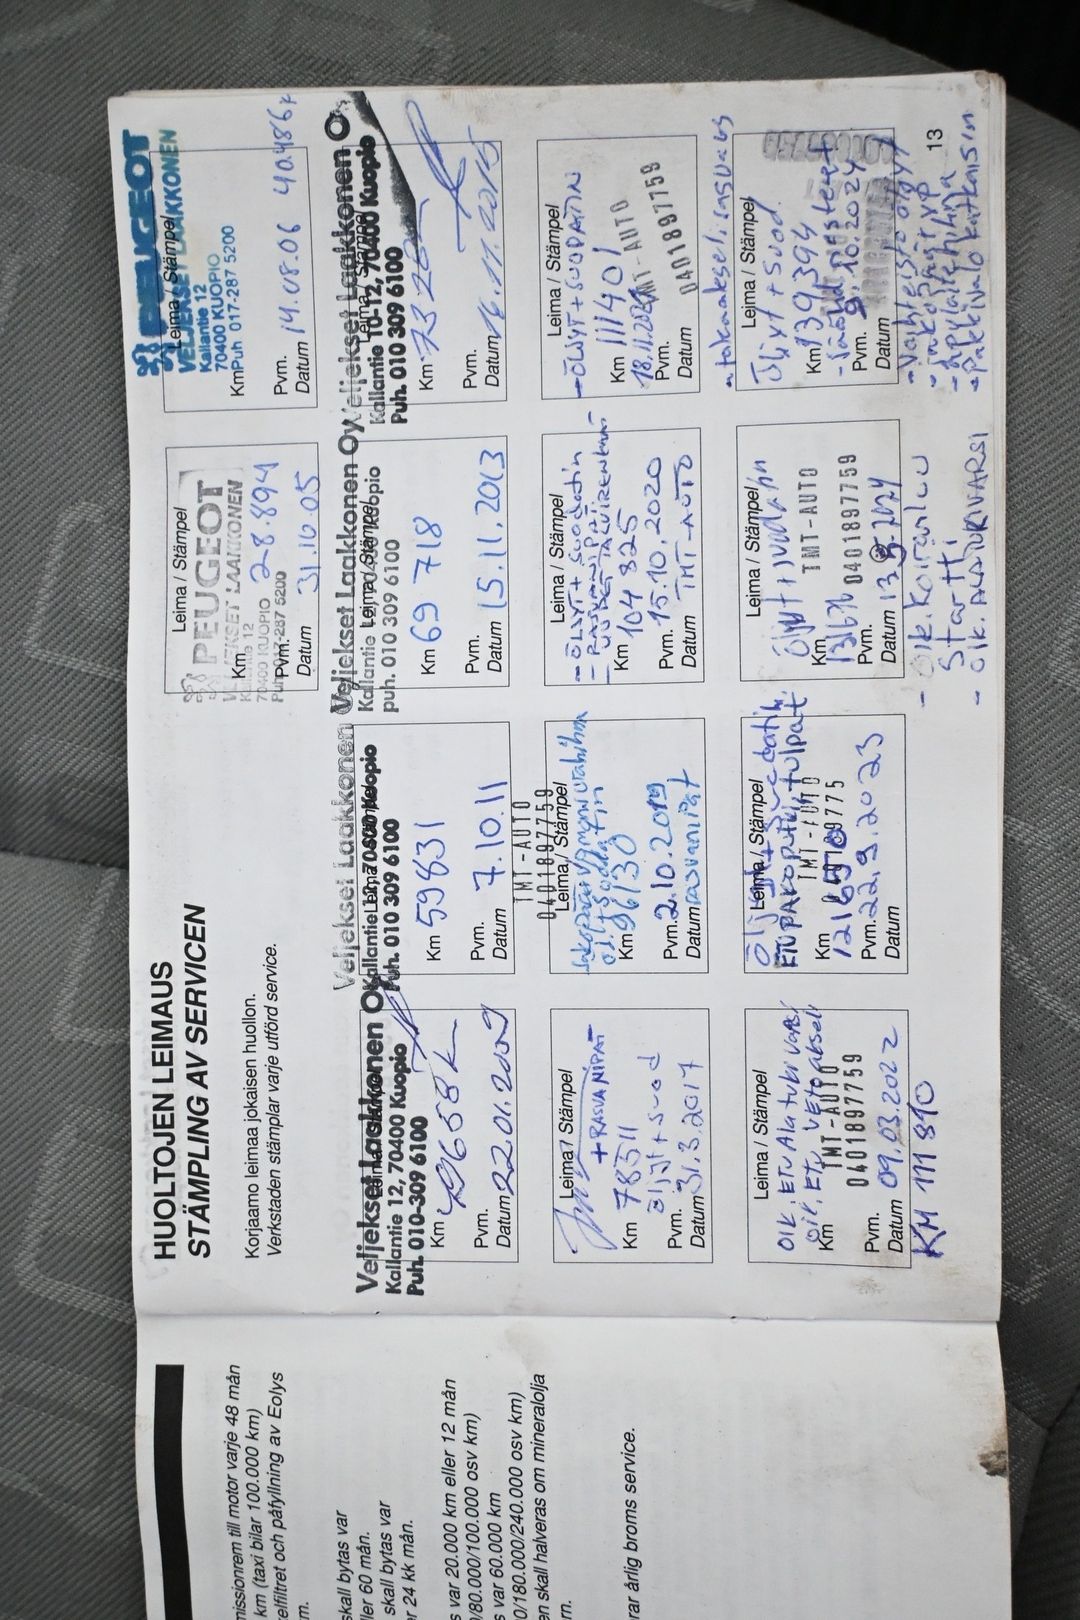 HUOLTOJEN LEIMAUS
STÄMPLING AV SERVICEN
Korjaamo leimaa jokaisen huollon.
Verkstaden stämplar varje utförd service.
Leima / Stämpel
PEUGEOT
VELJEKSET LAAKKONEN
70400 KUOPIO
Km 28.894
Pvm.
Datum 31.10.05
PEUGEOT
Leima / Stämpel
VELJEKSET LAAKKONEN
Kallantie 12
70400 KUOPIO
Km Puh 017-287 5200
Pvm.
Datum 14.08.06 40.486k
Veljekset Laakkonen Oy
Kallantie 12, 70400 Kuopio
Puh. 010-309 6100
Km 49658k
Pvm.
Datum 22.01.2009
Veljekset Laakkonen
Kallantie 12, 70400 Kuopio
Puh. 010 309 6100
Km 59831
Pvm.
Datum 7.10.11
Veljekset Laakkonen Oy
Kallantie
puh. 010 309 6100
Km 69 718
Pvm.
Datum 15.11.2013
Veljekset Laakkonen O
Kallantie 10-12, 70400 Kuopio
Puh. 010 309 6100
Km 73 20
Pvm.
Datum 16.11.2015
Leima / Stämpel
+ RASVANIPAT
Km 78511
Öljyt + suod
Pvm.
Datum 31.3.2017
TMT-AUTO
0401897759
Leima / Stämpel
Km 96130
Pvm. 2.10.2019
Datum rasvanipat
Leima / Stämpel
- ÖLJYT + SUODATIN
- RASVANIPAT
Km 104 825
Pvm. 15.10.2020
Datum TMT-AUTO
Leima / Stämpel
- ÖLJYT + SUODATIN
Km 111401
18.11.2021
TMT-AUTO
0401897759
Pvm.
Datum
Leima / Stämpel
OIK. ETU Alatukivarsi
OIK. ETU Vetoakseli
Km TMT-AUTO
0401897759
Pvm.
Datum 09.03.2022
KM 111810
Leima / Stämpel
ETUPAKOPUTKI, tulpat
TMT-AUTO
Km 121650
Pvm. 22.9.2023
Datum
Leima / Stämpel
Öljyt + suodatin
TMT-AUTO
Km 131676 0401897759
Pvm.
Datum 13.5.2024
- Oik.
Startti
- Oik. ALATUKIVARSI
- takaakselin
Leima / Stämpel
Öljyt + suod.
Km 139,394
Pvm.
Datum 9.10.2024
- Vaihteisto öljyt
- Pakkivalo katkaisin
13
missionrem till motor varje 48 mån
km (taxi bilar 100.000 km)
elfiltret och påfyllning av Eolys
m.
skall bytas var
ller 60 mån.
skall bytas var
er 24 kk mån.
s var 20.000 km eller 12 mån
/80.000/100.000 osv km)
s var 60.000 km
0/180.000/240.000 osv km)
en skall halveras om mineralolja
m.
rar årlig broms service.